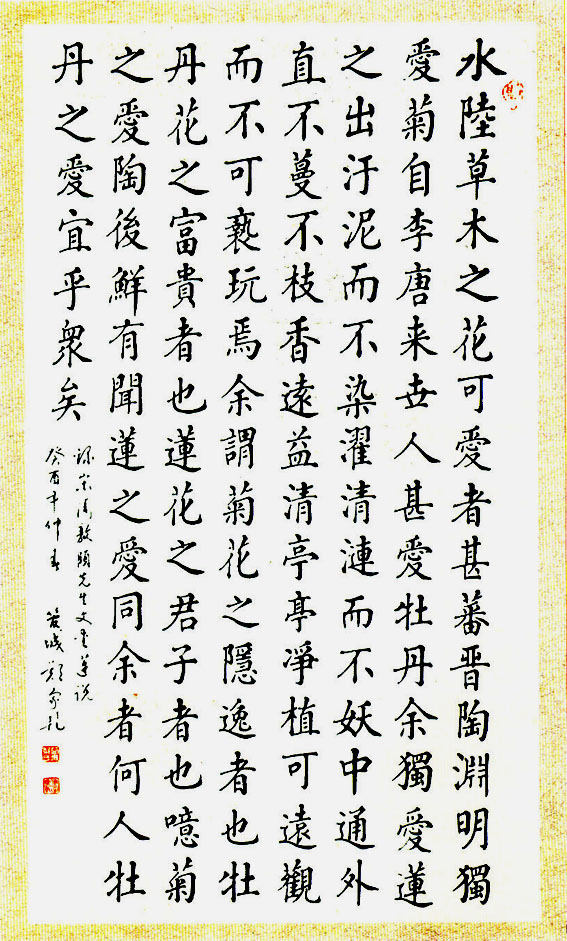 水陸草木之花可愛者甚蕃晋陶淵明獨
愛菊自李唐来世人甚愛牡丹余獨愛蓮
之出汙泥而不染濯清漣而不妖中通外
直不蔓不枝香遠益清亭亭凈植可遠觀
而不可褻玩焉余謂菊花之隱逸者也牡
丹花之富貴者也蓮花之君子者也噫菊
之愛陶後鮮有聞蓮之愛同余者何人牡
丹之愛宜乎衆矣
録宋周敦頤先生文愛蓮説
癸酉年仲春